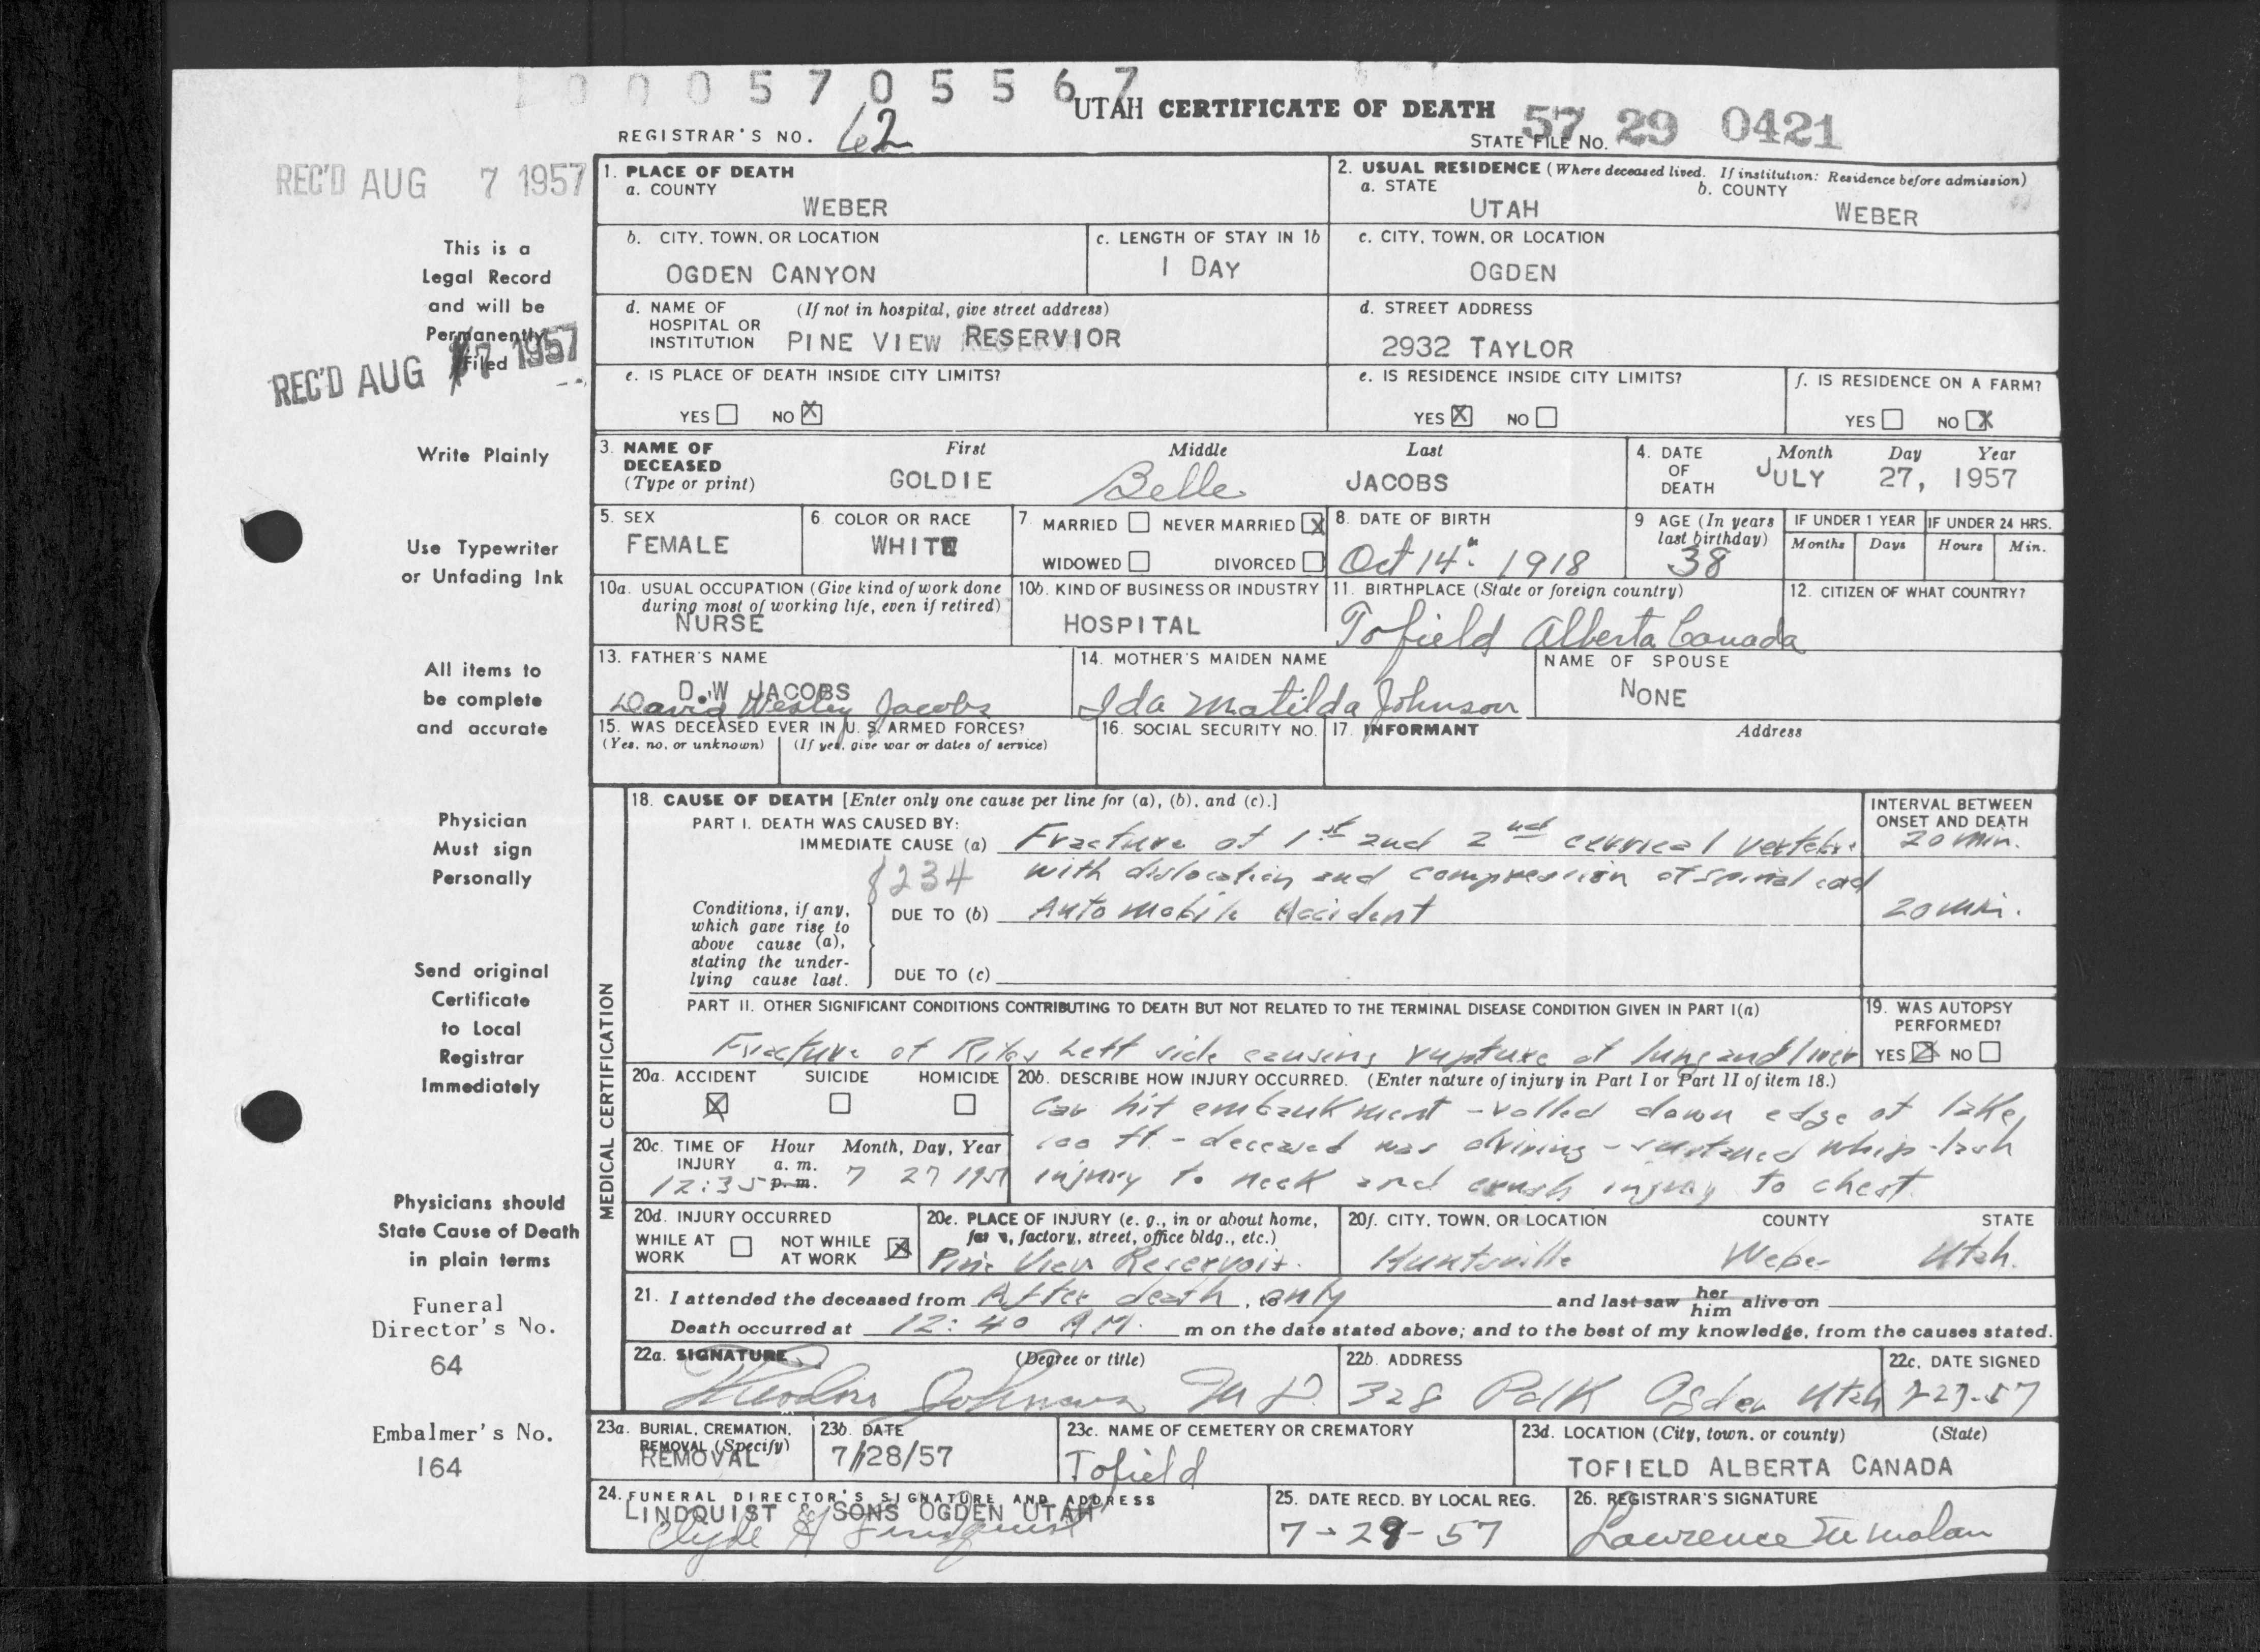 0 0 0 5 7 0 5 5 6 7
UTAH CERTIFICATE OF DEATH
REGISTRAR'S NO. 62
STATE FILE NO. 57 29 0421
REC'D AUG 7 1957
This is a
Legal Record
and will be
Permanently
Filed
REC'D AUG 17 1957
Write Plainly
Use Typewriter
or Unfading Ink
All items to
be complete
and accurate
Physician
Must sign
Personally
Send original
Certificate
to Local
Registrar
Immediately
Physicians should
State Cause of Death
in plain terms
Funeral
Director's No.
64
Embalmer's No.
164
1. PLACE OF DEATH
a. COUNTY
WEBER
2. USUAL RESIDENCE (Where deceased lived. If institution: Residence before admission)
a. STATE
UTAH
b. COUNTY
WEBER
b. CITY, TOWN, OR LOCATION
OGDEN CANYON
c. LENGTH OF STAY IN 1b
1 DAY
c. CITY, TOWN, OR LOCATION
OGDEN
d. NAME OF HOSPITAL OR INSTITUTION (If not in hospital, give street address)
PINE VIEW RESERVIOR
d. STREET ADDRESS
2932 TAYLOR
e. IS PLACE OF DEATH INSIDE CITY LIMITS?
YES NO X
e. IS RESIDENCE INSIDE CITY LIMITS?
YES X NO
f. IS RESIDENCE ON A FARM?
YES NO X
3. NAME OF DECEASED (Type or print)
First Middle Last
GOLDIE Belle JACOBS
4. DATE OF DEATH
Month Day Year
JULY 27, 1957
5. SEX
FEMALE
6. COLOR OR RACE
WHITE
7. MARRIED NEVER MARRIED X
WIDOWED DIVORCED
8. DATE OF BIRTH
Oct 14" 1918
9 AGE (In years last birthday)
38
IF UNDER 1 YEAR
Months Days
IF UNDER 24 HRS.
Hours Min.
10a. USUAL OCCUPATION (Give kind of work done during most of working life, even if retired)
NURSE
10b. KIND OF BUSINESS OR INDUSTRY
HOSPITAL
11. BIRTHPLACE (State or foreign country)
Tofield Alberta Canada
12. CITIZEN OF WHAT COUNTRY?
13. FATHER'S NAME
D.W JACOBS
David Wesley Jacobs
14. MOTHER'S MAIDEN NAME
Ida Matilda Johnson
NAME OF SPOUSE
NONE
15. WAS DECEASED EVER IN U. S. ARMED FORCES?
(Yes, no, or unknown) (If yes, give war or dates of service)
16. SOCIAL SECURITY NO.
17. INFORMANT Address
MEDICAL CERTIFICATION
18. CAUSE OF DEATH [Enter only one cause per line for (a), (b), and (c).]
INTERVAL BETWEEN ONSET AND DEATH
PART I. DEATH WAS CAUSED BY:
IMMEDIATE CAUSE (a) Fracture of 1st and 2nd cervical vertebra 20 min.
8234 with dislocation and compression of spinal cord
Conditions, if any, which gave rise to above cause (a), stating the underlying cause last.
DUE TO (b) Automobile Accident 20 min.
DUE TO (c)
PART II. OTHER SIGNIFICANT CONDITIONS CONTRIBUTING TO DEATH BUT NOT RELATED TO THE TERMINAL DISEASE CONDITION GIVEN IN PART I(a)
Fracture of Ribs Left side causing rupture of lung and liver
19. WAS AUTOPSY PERFORMED?
YES X NO
20a. ACCIDENT SUICIDE HOMICIDE
X
20b. DESCRIBE HOW INJURY OCCURRED. (Enter nature of injury in Part I or Part II of item 18.)
Car hit embankment - rolled down edge of lake,
100 ft - deceased was driving - sustained whip-lash
injury to neck and crush injury to chest
20c. TIME OF INJURY Hour a. m. p. m. Month, Day, Year
12:35 7 27 1957
20d. INJURY OCCURRED
WHILE AT WORK NOT WHILE AT WORK X
20e. PLACE OF INJURY (e. g., in or about home, farm, factory, street, office bldg., etc.)
Pine View Reservoir.
20f. CITY, TOWN, OR LOCATION COUNTY STATE
Huntsville Weber Utah.
21. I attended the deceased from After death, to only and last saw her him alive on
Death occurred at 12:40 AM. m on the date stated above; and to the best of my knowledge, from the causes stated.
22a. SIGNATURE (Degree or title)
Theodore Johnson M D.
22b. ADDRESS
328 Ogden Utah
22c. DATE SIGNED
7-27-57
23a. BURIAL, CREMATION, REMOVAL (Specify)
REMOVAL
23b. DATE
7/28/57
23c. NAME OF CEMETERY OR CREMATORY
Tofield
23d. LOCATION (City, town, or county) (State)
TOFIELD ALBERTA CANADA
24. FUNERAL DIRECTOR'S SIGNATURE AND ADDRESS
LINDQUIST & SONS OGDEN UTAH
Clyde A Lindquist
25. DATE RECD. BY LOCAL REG.
7-29-57
26. REGISTRAR'S SIGNATURE
Lawrence